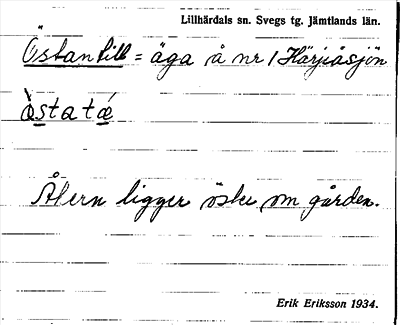 Lillhärdals sn. Svegs tg. Jämtlands län.
Östantill = äga å nr 1 Härjåsjön
æ̀statǽ
Åkern ligger öster om gården.
Erik Eriksson 1934.